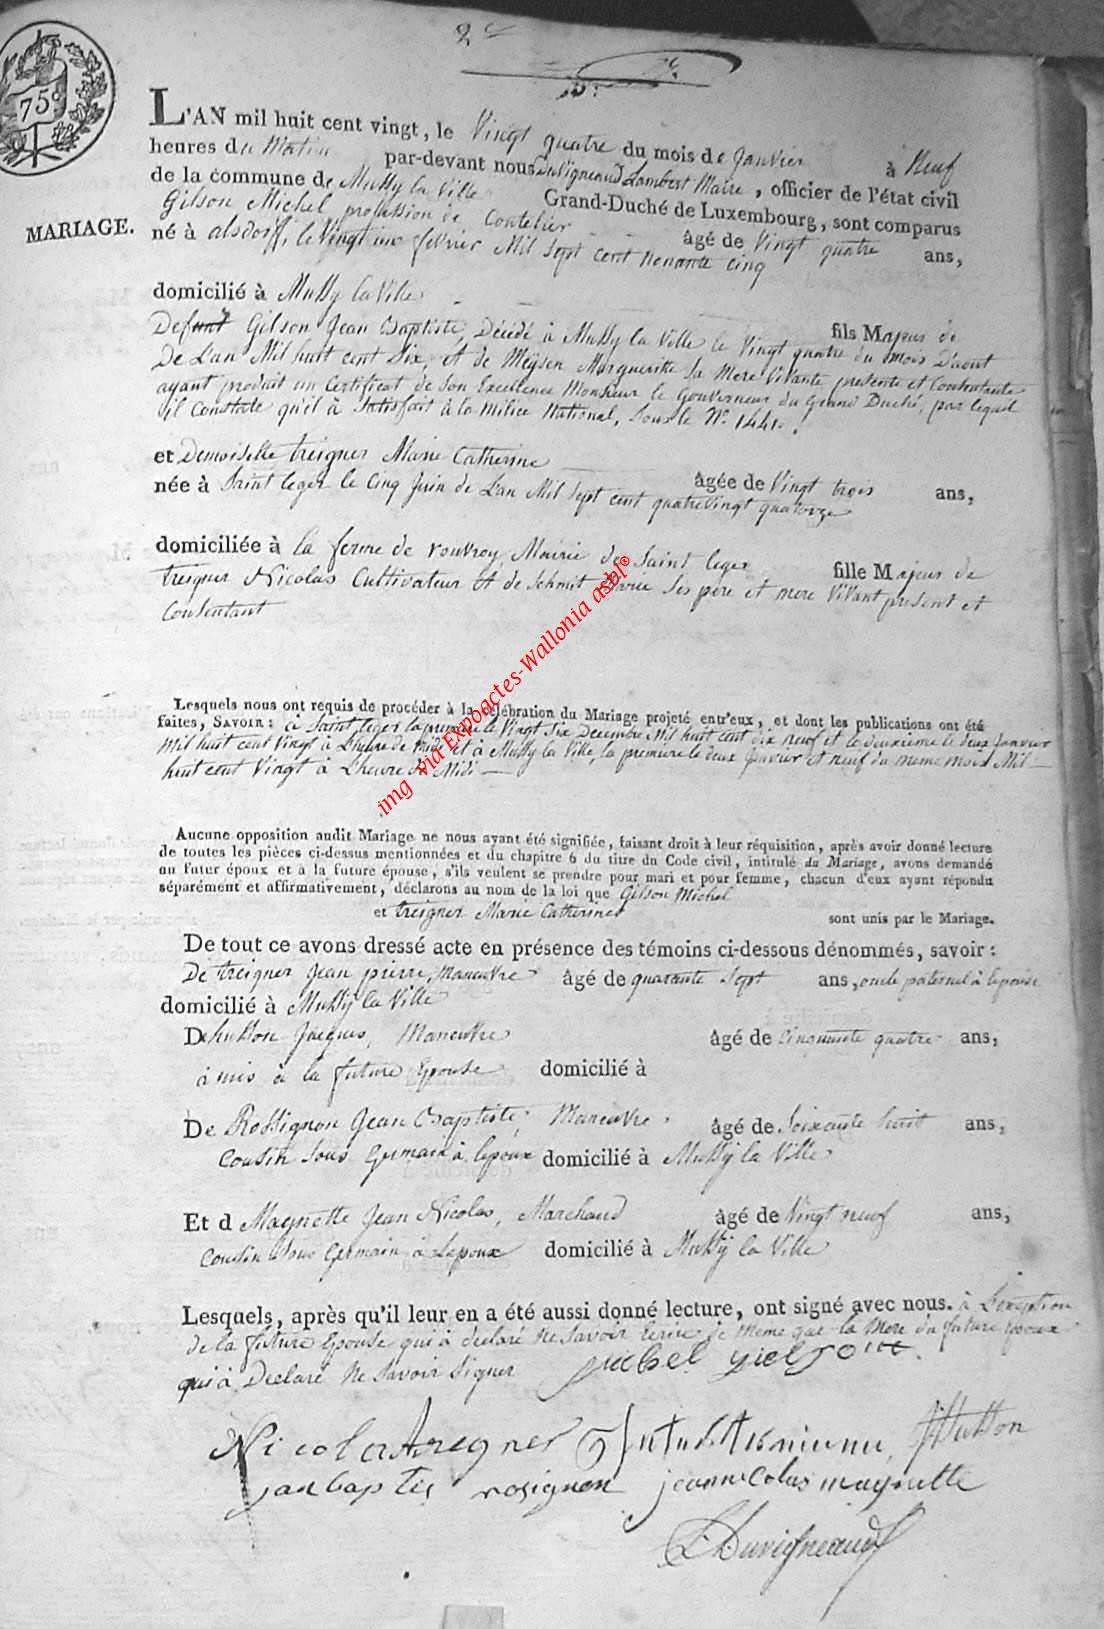 2e
75 c
MARIAGE.
L'AN mil huit cent vingt, le Vingt quatre du mois de Janvier à Neuf
heures du Matin par-devant nous Duvigneaud Lambert Maire, officier de l'état civil
de la commune de Mussy la Ville Grand-Duché de Luxembourg, sont comparus
Gilson Michel profession de Coutelier âgé de Vingt quatre ans,
né à alsdorff, le vingt un fevrier Mil Sept cent nonante cinq
domicilié à Mussy la Ville fils Majeur de
Defunt Gilson Jean Baptiste, Décédé à Mussy la Ville le Vingt quatre du mois D'aout
De L'an Mil huit cent Six, et de Meysen Marguerite Sa Mere Vivante presente et Consentante
ayant produit un Certificat de Son Excellence Monsieur le Gouverneur du Grand Duché, par lequel
il Constate qu'il à Satisfait à la Milice National, Sous le No. 1441.
et Demoiselle treigner Marie Catherine
née à Saint leger le Cinq Juin de L'an Mil Sept cent quatre Vingt quatorze âgée de Vingt trois ans,
domiciliée à la ferme de rouvroy, Mairie de Saint leger fille Majeur de
treigner Nicolas Cultivateur et de Schmit Marie Ses père et mere Vivant present et
Consentant
img via Expoactes-Wallonia asbl®
Lesquels nous ont requis de procéder à la célébration du Mariage projeté entr'eux, et dont les publications ont été
faites, SAVOIR: à Saint leger la premiere le Vingt Six Decembre Mil huit cent dix neuf et la deuxieme le deux Janvier
Mil huit cent Vingt à L'heure de Midi et à Mussy la Ville, la premiere le deux Janvier et neuf du meme mois Mil
huit cent Vingt à L'heure de Midi
Aucune opposition audit Mariage ne nous ayant été signifiée, faisant droit à leur réquisition, après avoir donné lecture
de toutes les pièces ci-dessus mentionnées et du chapitre 6 du titre du Code civil, intitulé du Mariage, avons demandé
au futur époux et à la future épouse, s'ils veulent se prendre pour mari et pour femme, chacun d'eux ayant répondu
séparément et affirmativement, déclarons au nom de la loi que Gilson Michel
et treigner Marie Catherine sont unis par le Mariage.
De tout ce avons dressé acte en présence des témoins ci-dessous dénommés, savoir:
De treigner Jean pierre, Maneuvre âgé de quarante Sept ans, oncle paternel à lepouse
domicilié à Mussy la Ville
De husson Jacques, Maneuvre âgé de Cinquante quatre ans,
amis à la future Epouse domicilié à
De Rossignon Jean Baptiste, Maneuvre âgé de Soixante huit ans,
Cousin Sous Germain à lepoux domicilié à Mussy la Ville
Et d Magnette Jean Nicolas, Marchand âgé de Vingt neuf ans,
Cousin Sous Germain à Lepoux domicilié à Mussy la Ville
Lesquels, après qu'il leur en a été aussi donné lecture, ont signé avec nous. à L'exeption
de la future Epouse qui à declaré Ne Savoir Ecrire de Meme que la Mere du future epoux
qui à Declaré Ne Savoir Signer
Nicola treigner
J Husson
jan baptis rosignon jean nicolas magnette
L Duvigneaud